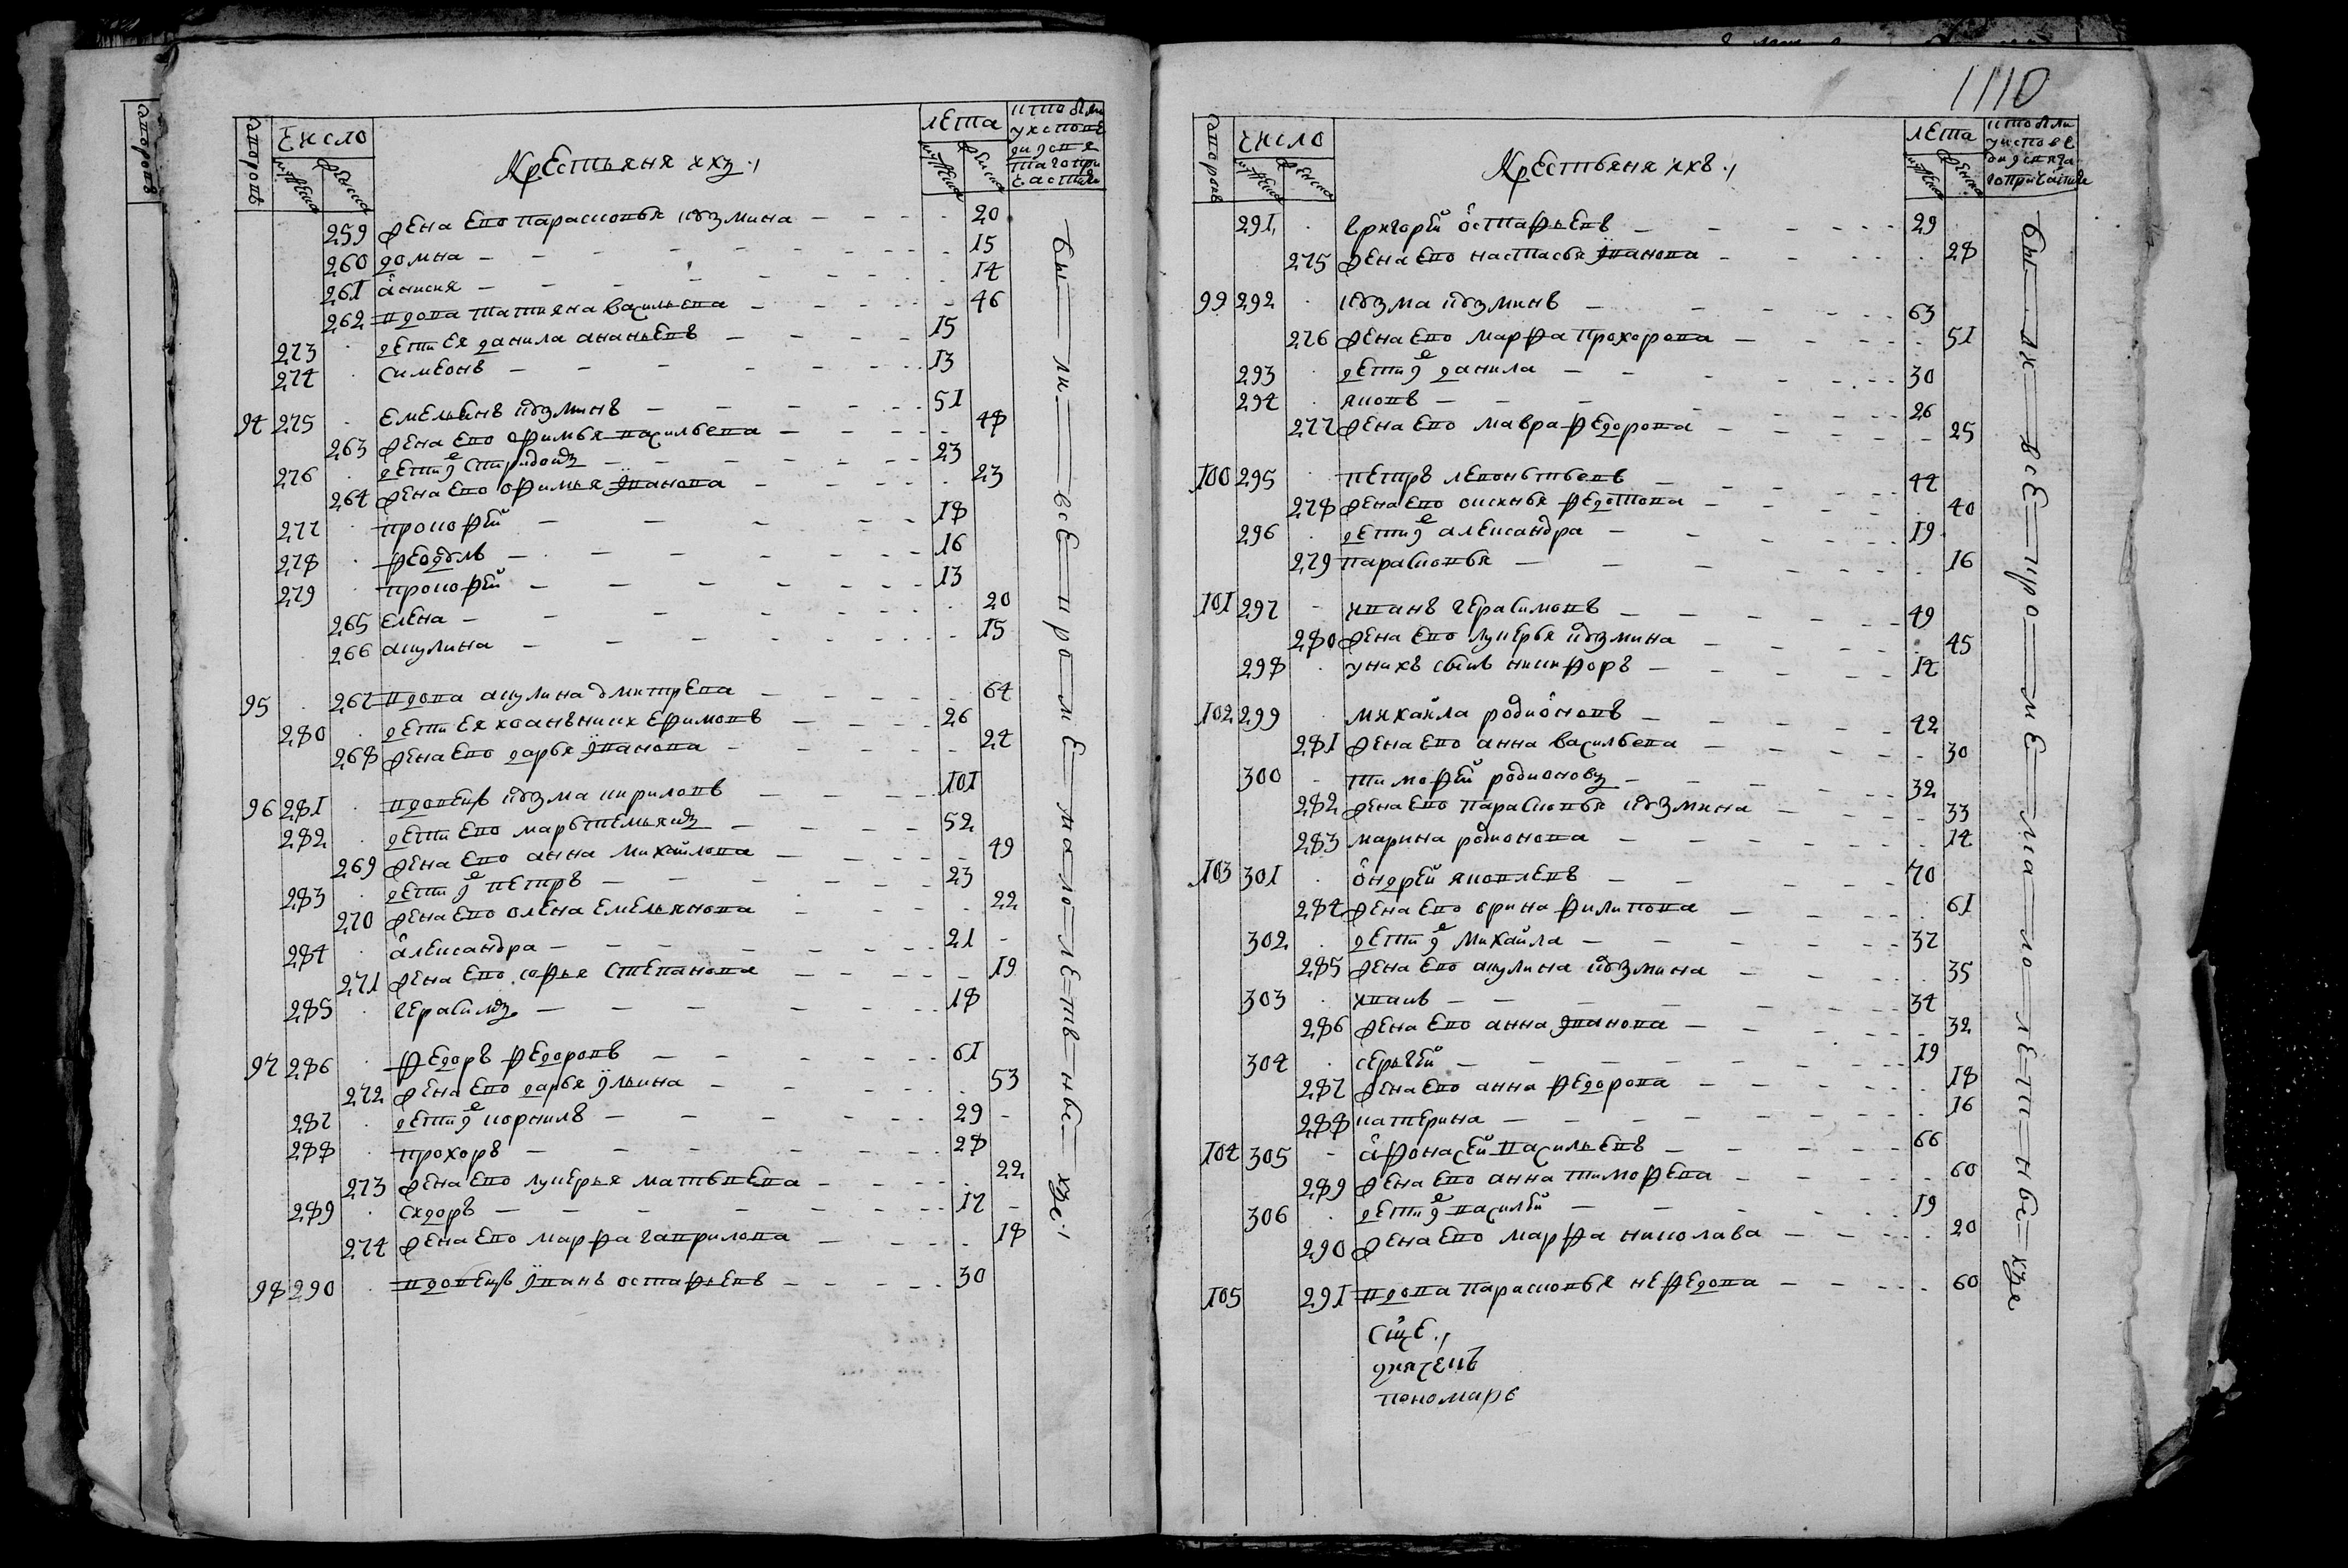 дворовъ
дворовъ
число
мужеска
женска
Крестьяня ихъ
лета
мужеска
женска
кто были
у исповѣ
ди и свя
таго при
частия
259 жена ево парасковья кузмина 20
260 домна 15
261 анисия 14
262 вдова татияна васильева 46
273 дети ея данила ананьевъ 15
274 симеонъ 13
94 275 емельянъ кузминъ 51
263 жена ево офимья васильева 48
276 дети ево спиридонъ 23
264 жена ево офимья иванова 23
277 прокофей 18
278 феодулъ 16
279 прокофей 13
265 елена 20
266 акулина 15
95 267 вдова акулина дмитрева 64
280 дети ея иоанъникъ ефимовъ 26
268 жена ево дарья иванова 24
96 281 вдовецъ кузма кириловъ 101
282 дети ево маръемьянъ 52
269 жена ево анна михайлова 49
283 дети ево петръ 23
270 жена ево олена емельянова 22
284 александра 21
271 жена ево софья степанова 19
285 герасимъ 18
97 286 федоръ федоровъ 61
272 жена ево дарья ильина 53
287 дети ево корнилъ 29
288 прохоръ 28
273 жена ево лукерья матвѣева 22
289 сидоръ 17
274 жена ево марфа гаврилова 18
98 290 вдовецъ иванъ остафьевъ 30
были все кроме малолетъныхъ
1110
дворовъ
число
мужеска
женска
Крестьяня ихъ
лета
мужеска
женска
кто были
у исповѣ
ди и свята
го причастия
291 григорей остафьевъ 29
275 жена ево настасья иванова 28
99 292 кузма кузминъ 63
276 жена ево марфа прохорова 51
293 дети ево данила 30
294 яковъ 26
277 жена ево мавра федорова 25
100 295 петръ леонътьевъ 44
278 жена ево оксинья федотова 40
296 дети ево александра 19
279 парасковья 16
101 297 иванъ герасимовъ 49
280 жена ево лукерья кузмина 45
298 у нихъ сынъ никифоръ 14
102 299 михайла родионовъ 42
281 жена ево анна васильева 30
300 тимофей родионовъ 32
282 жена ево парасковья кузмина 33
283 марина родионова 14
103 301 ондрей яковлевъ 70
284 жена ево орина филипова 61
302 дети ево михайла 37
285 жена ево акулина кузмина 35
303 иванъ 34
286 жена ево анна иванова 32
304 серьгей 19
287 жена ево анна федорова 18
288 катерина 16
104 305 афонасей васильевъ 66
289 жена ево анна тимофева 60
306 дети ево василей 19
290 жена ево марфа николава 20
105 291 вдова парасковья нефедова 60
дьячекъ
пономарь
были все кроме малолетныхъ